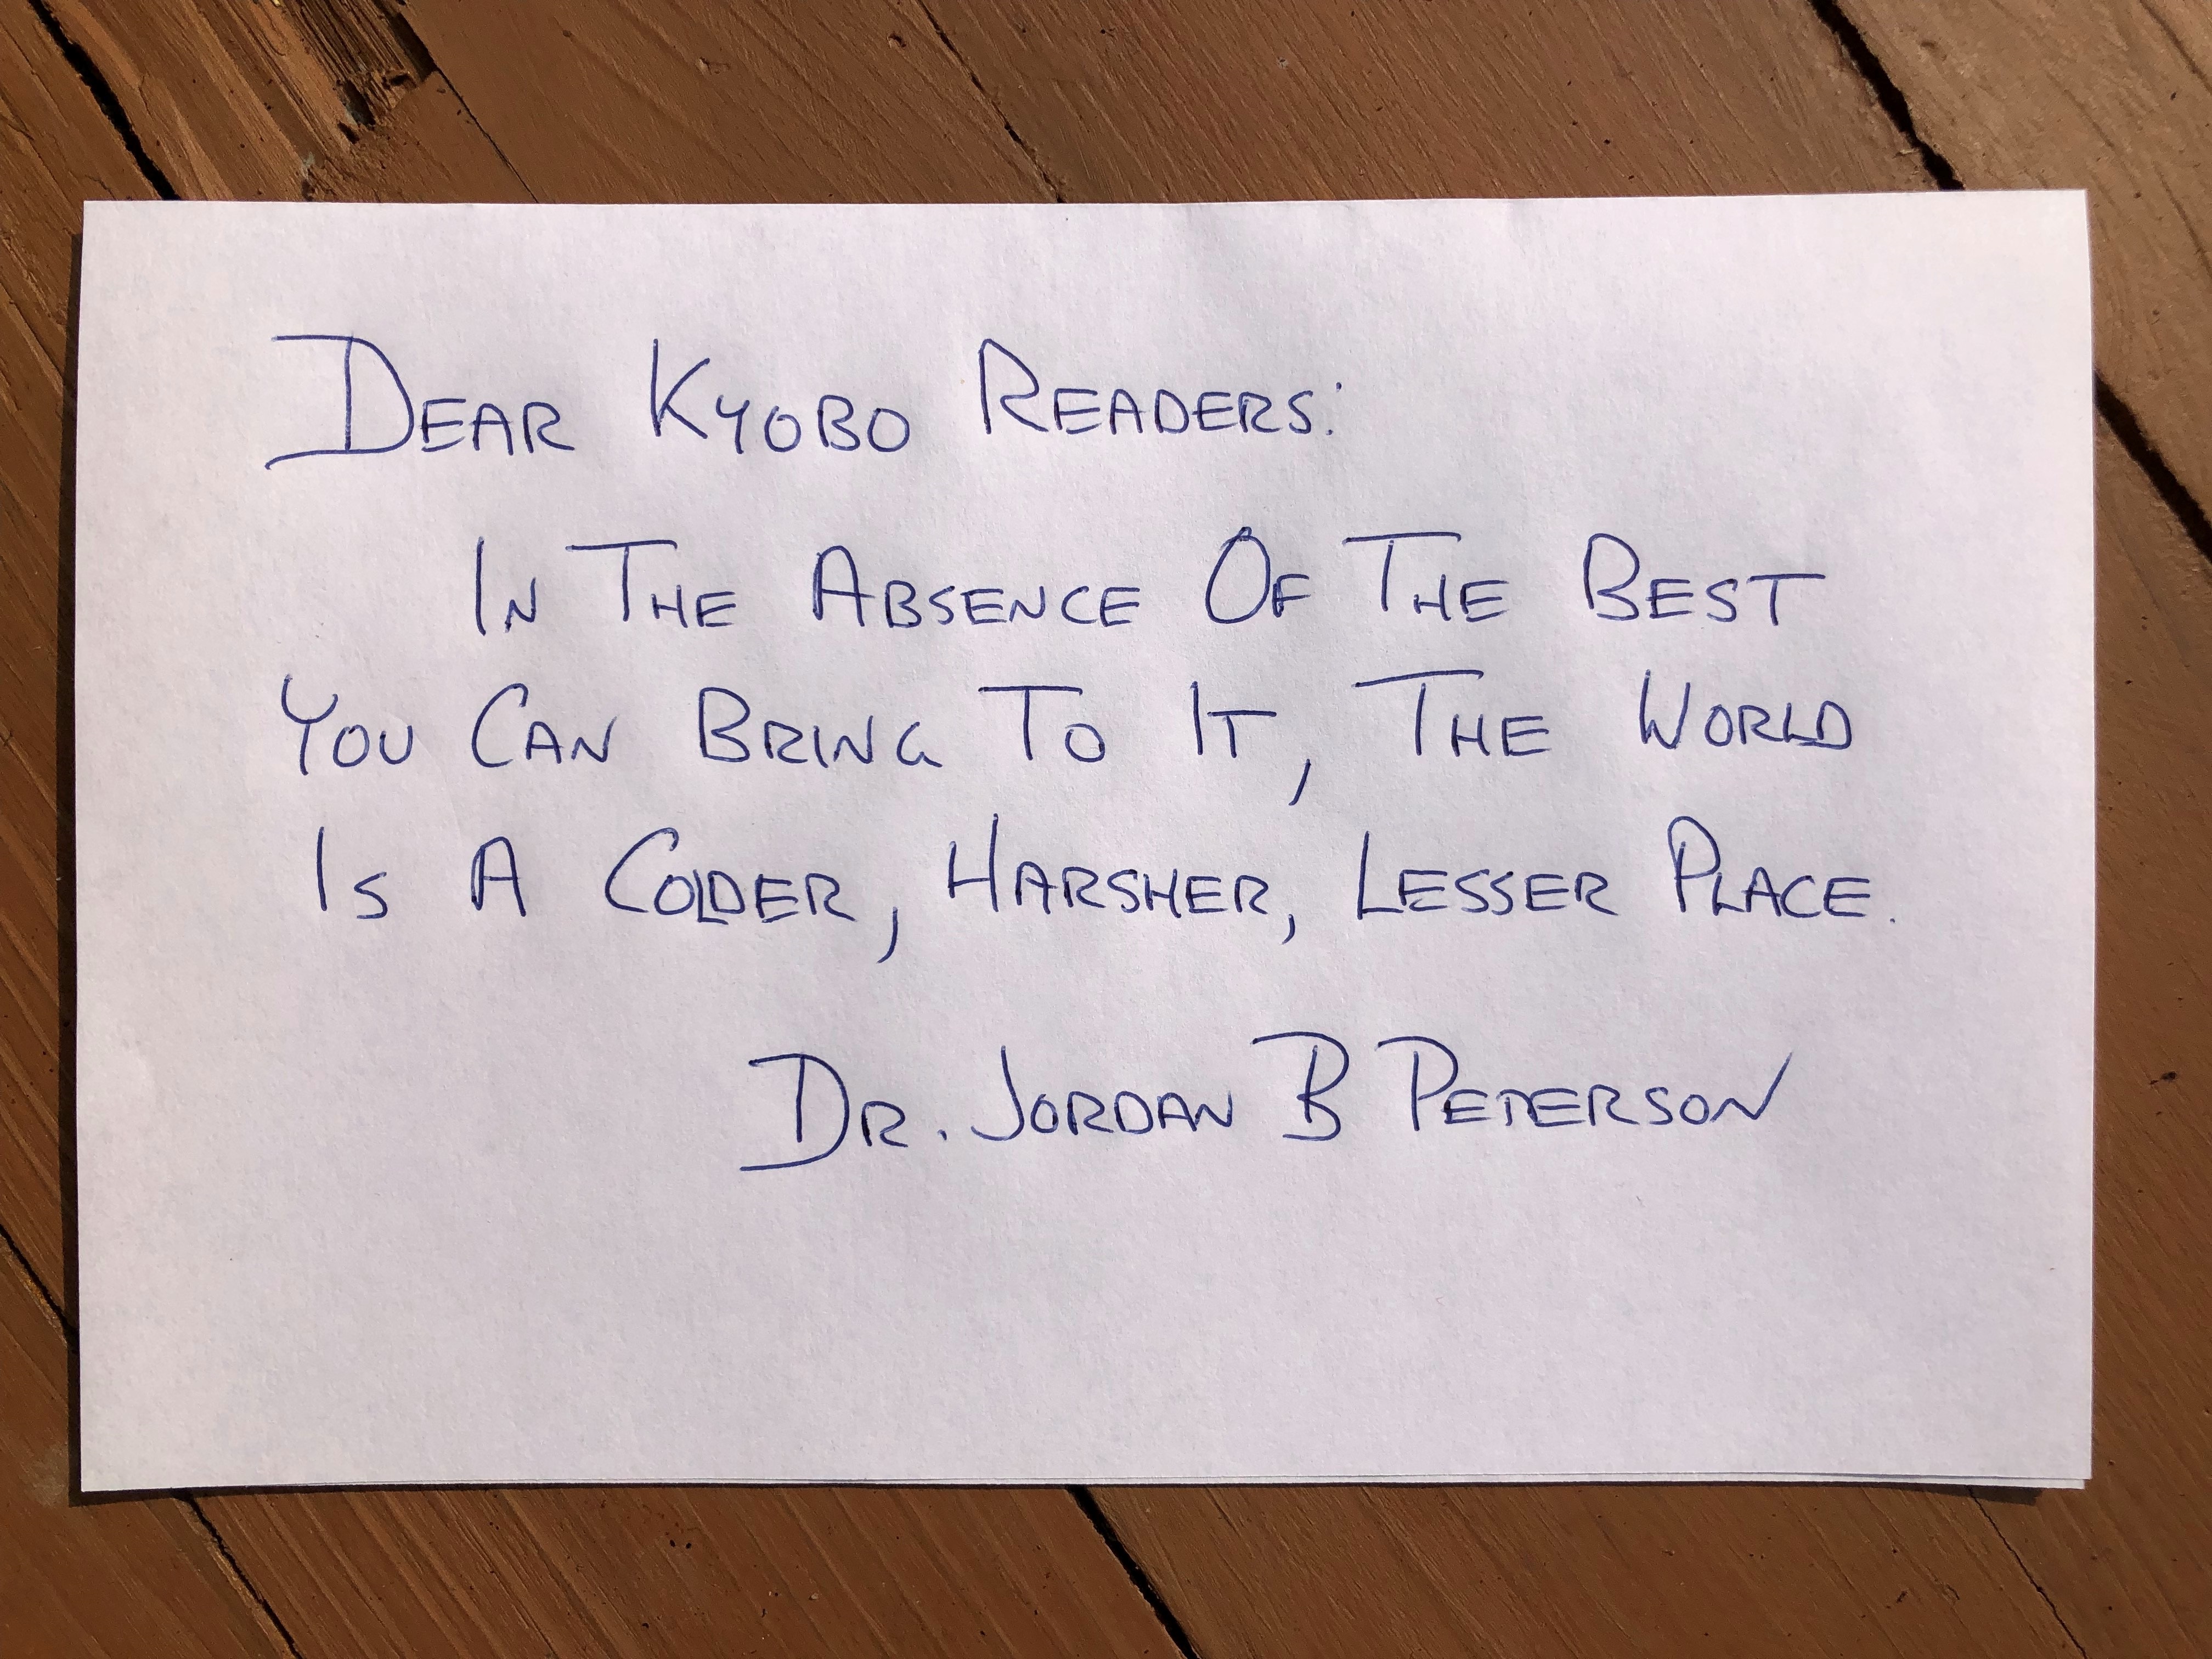 DEAR KYOBO READERS:
IN THE ABSENCE OF THE BEST
YOU CAN BRING TO IT, THE WORLD
IS A COLDER, HARSHER, LESSER PLACE.
DR. JORDAN B PETERSON